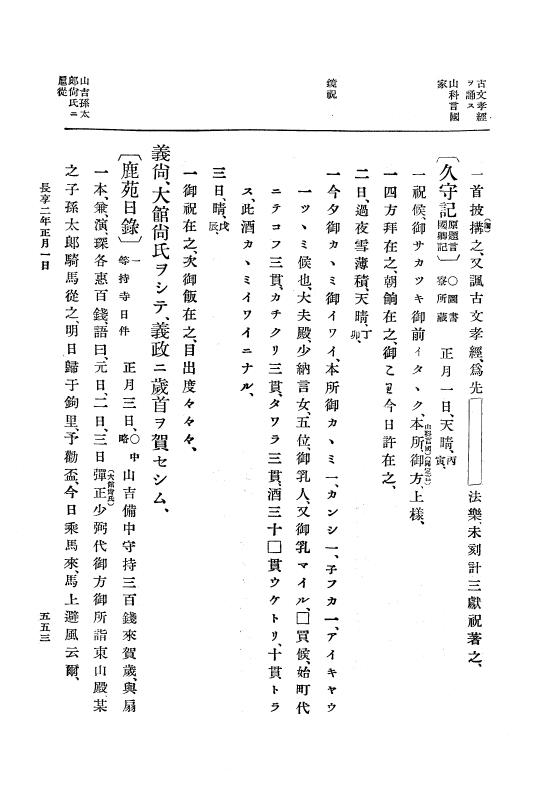 古文孝經
ヲ誦ス
山科言國
家
鏡祝
山吉孫太
郎尚氏ニ
扈從
一首披搆之、又諷古文孝經、爲先 法樂、未刻計三獻祝著之、
(講)
〔久守記〕原題言國卿記 ○圖書寮所藏 正月一日、天晴、丙寅、
一祝候、御サカツキ御前イタヽク、本所、御方、上樣、
一四方拜在之、朝餉在之、御こわ今日許在之、
二日、過夜雪薄積、天晴、丁卯、
一今夕御カヽミ御イワイ、本所御カヽミ一、カンシ一、子フカ一、アイキヤウ
一ツヽミ候也、大夫殿、少納言女、五位、御乳人、又御乳マイル、□買候、始町代
ニテコフ三貫、カチクリ三貫、タワラ三貫、酒三十□貫ウケトリ、十貫トラ
ス、此酒カヽミイワイニナル、
三日、晴、戊辰、
一御祝在之、次御飯在之、目出度々々々、
義尚、大館尚氏ヲシテ、義政ニ歲首ヲ賀セシム、
〔鹿苑日錄〕一等持寺日件 正月三日、○中略 山吉備中守持三百錢來賀歲、與扇
一本、兼、演、琛各惠百錢、語曰、元日、二日、三日彈正少弼代御方御所詣東山殿、某
(大館尚氏)
之子孫太郎騎馬從之、明日歸于鉤里、予勸盃、今日乘馬來、馬上避風云爾、
長享二年正月一日
五五三